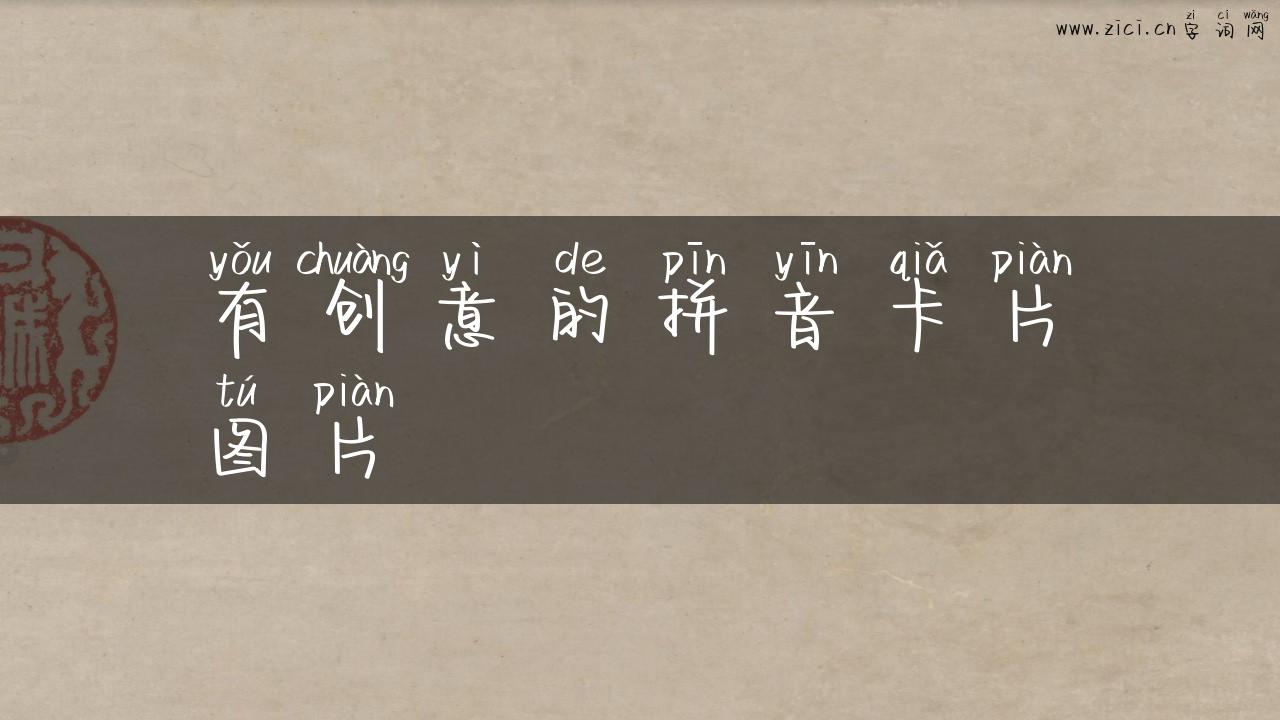 zì cí wǎng
www.zici.cn 字词网
yǒu chuàng yì de pīn yīn qiǎ piàn
有创意的拼音卡片
tú piàn
图片